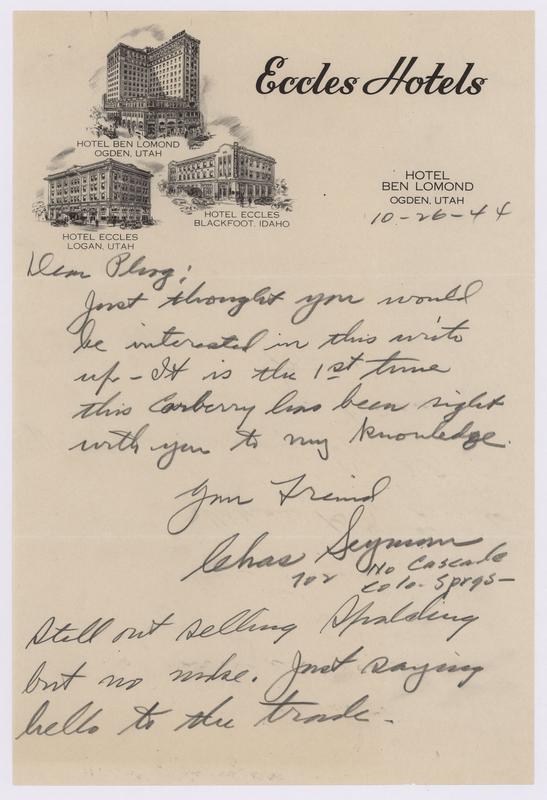 Eccles Hotels
HOTEL BEN LOMOND
OGDEN, UTAH
HOTEL ECCLES
BLACKFOOT, IDAHO
HOTEL ECCLES
LOGAN, UTAH
HOTEL
BEN LOMOND
OGDEN, UTAH
10-26-44
Dear
Just thought you would
be interested in this write
up - It is the 1st time
this Carberry has been right
with you to my knowledge.
Your Friend
Chas Seymour
702 No Cascade
Colo. Sprgs-
Still out selling Spalding
but no mdse. Just saying
hello to the trade.